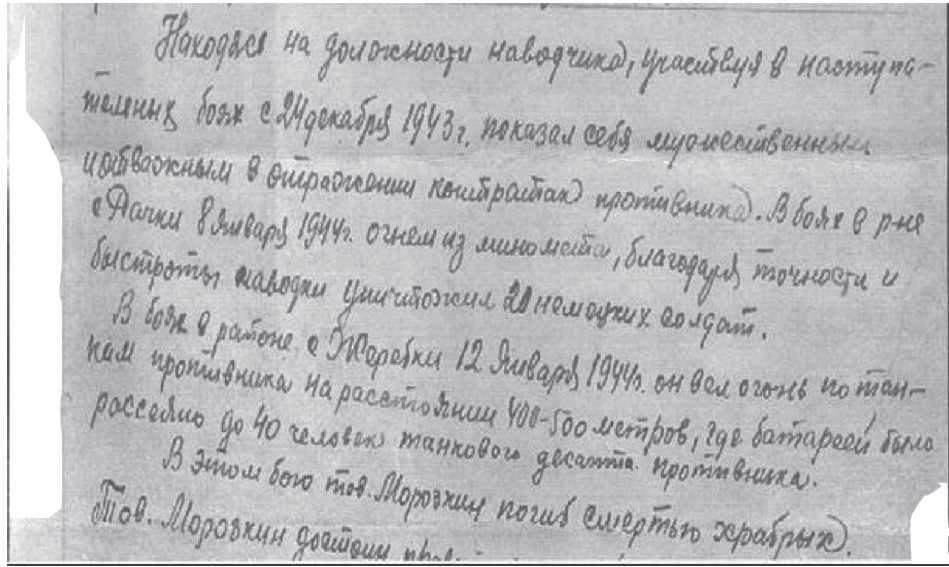 Находясь на должности наводчика, участвуя в наступа-
тельных боях с 24 декабря 1943 г. показал себя мужественным
и отважным в отражении контратак противника. В боях в р-не
с Дачки 8 Января 1944г. огнем из миномета, благодаря точности и
быстроты наводки уничтожил 20 немецких солдат.
В боях в районе с Жеребки 12 Января 1944г. он вел огонь по тан-
кам противника на расстоянии 400-500 метров, где батареей было
рассеяно до 40 человек танкового десанта противника.
В этом бою тов. Морозкин погиб смертью храбрых.
Тов. Морозкин достоин